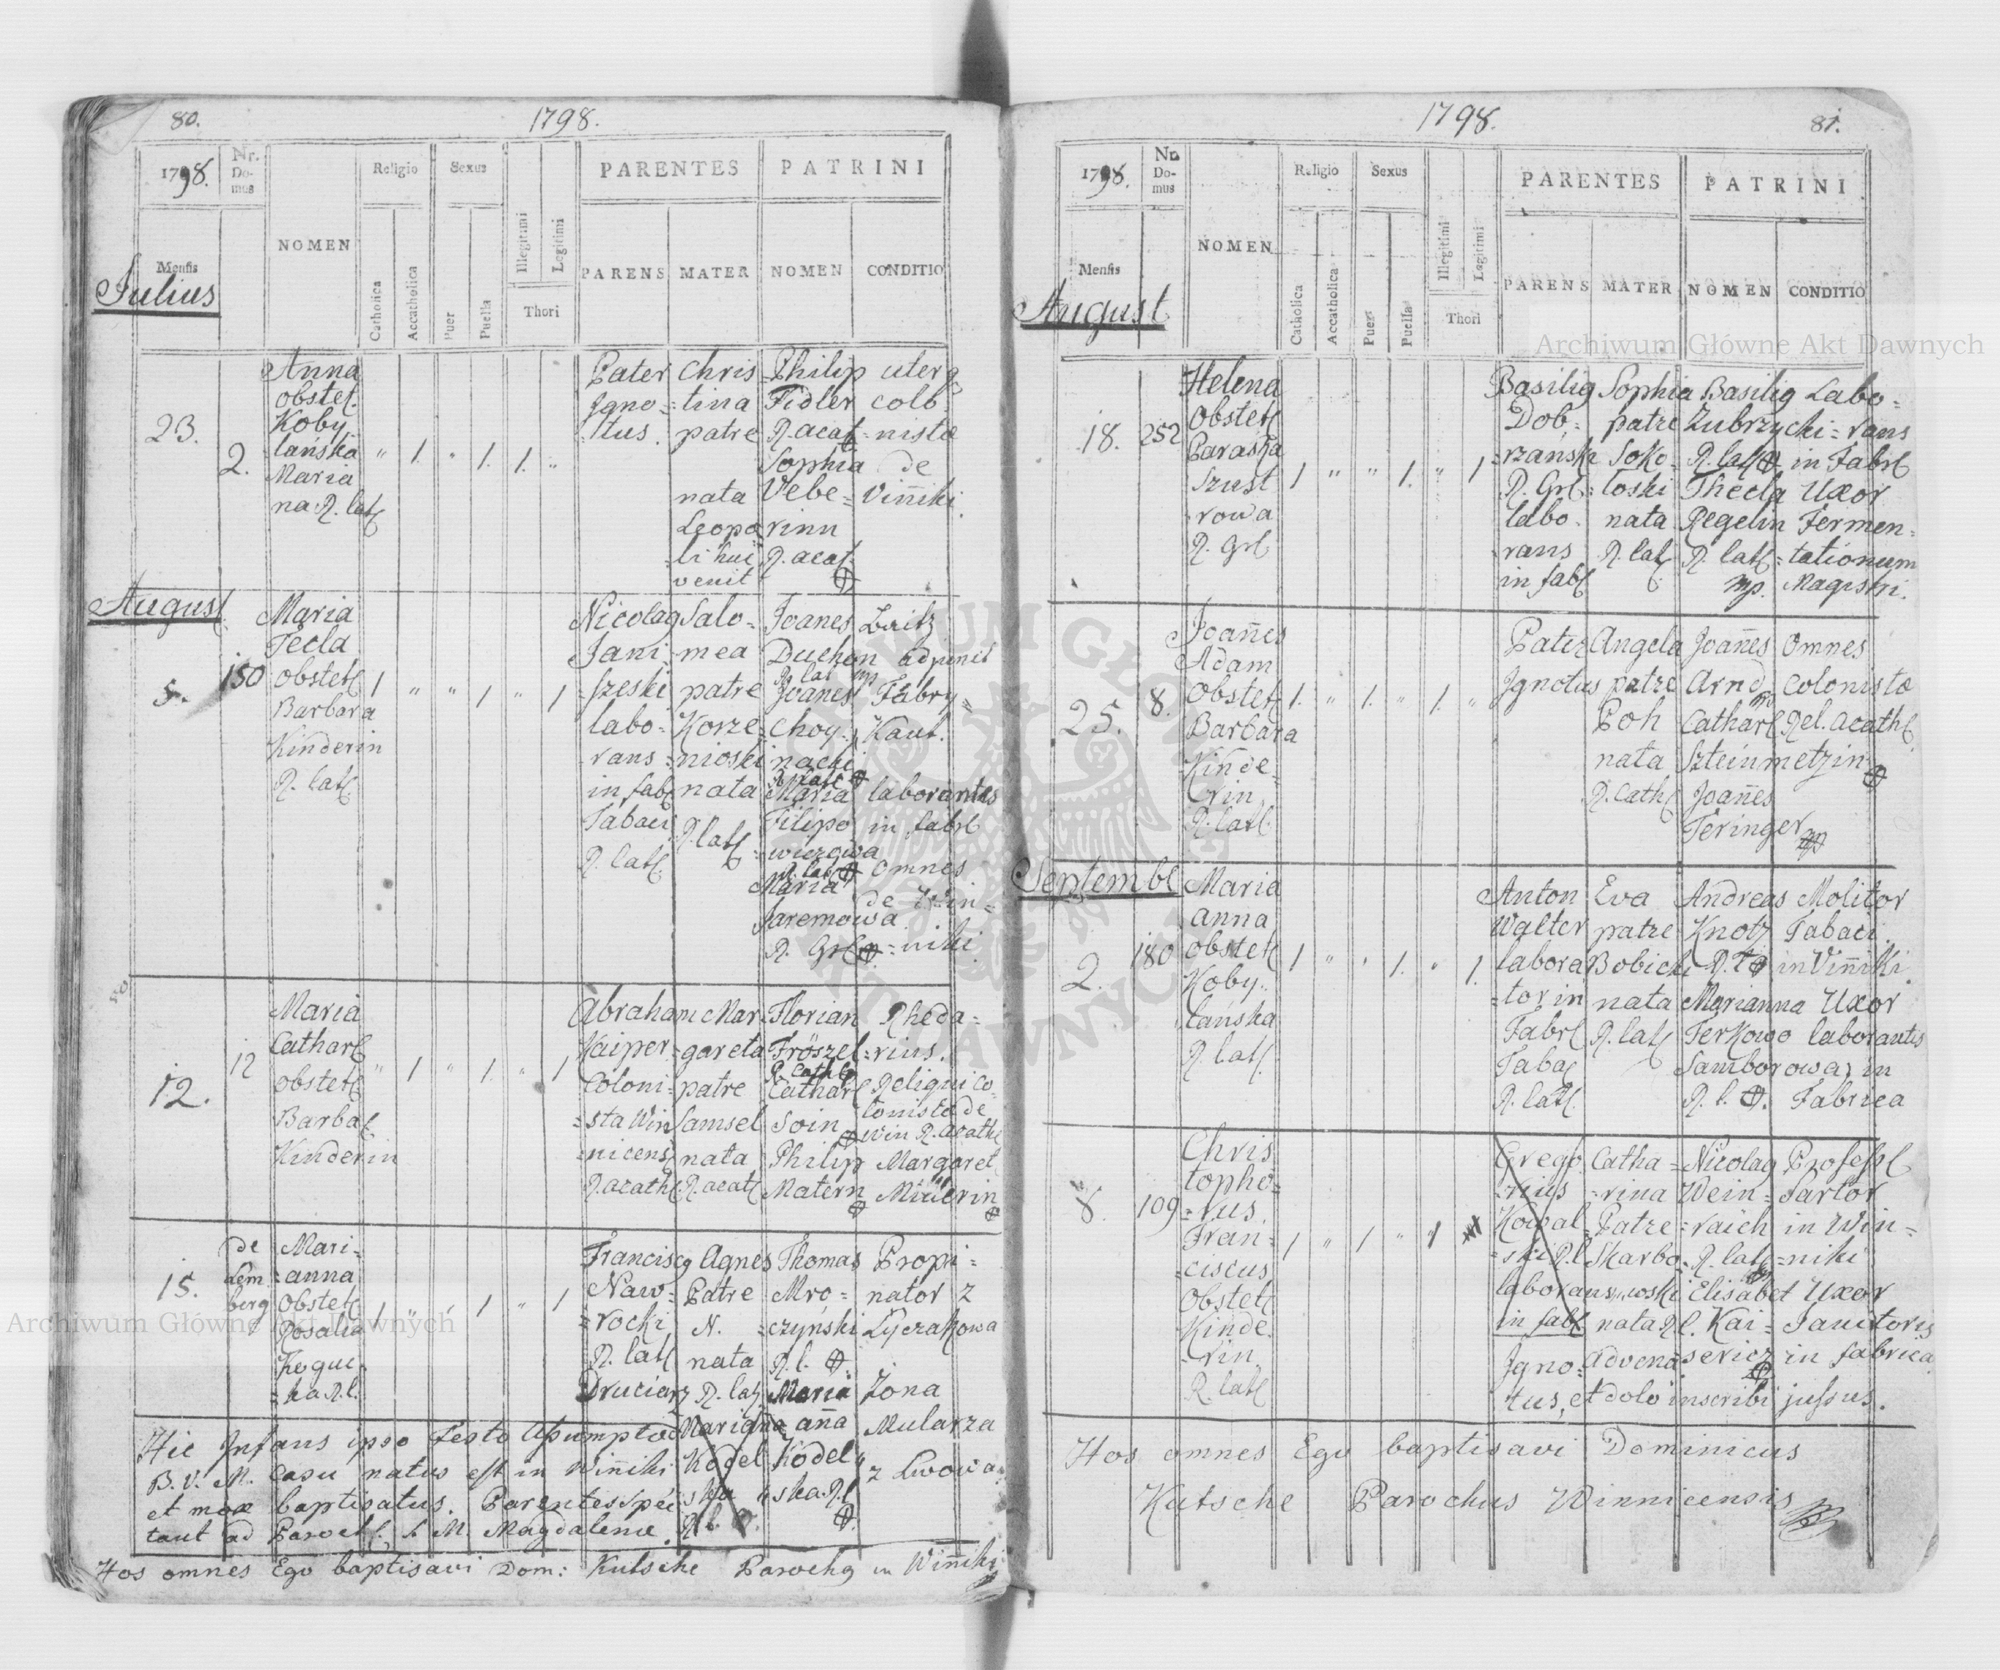 80.
1798.
1798.
Nr. Domus
NOMEN
Religio
Sexus
PARENTES
PATRINI
Mensis
Catholica
Accatholica
Puer
Puella
Illegitimi
Legitimi
Thori
PARENS
MATER
NOMEN
CONDITIO
Julius
23.
2.
Anna
obstet.
Koby=
=lańska
Maria
na R. lat
" 1. " 1. 1. "
Pater
Igno=
=tus.
Chris
=tina
patre
nata
Leopo
li huc
venit
Philip
Fidler
R. acat.
Sophia
Vebe=
rinn
R. acat.
uterq
colo
=nistæ
de
Viñiki.
August
5.
150
Maria
Tecla
obstet
Barbara
Kinderin
R. lat
1 " " 1 " 1
Nicolaq
Jani=
=szeski
labo=
rans
in fab
Tabaci
R. lat
Salo=
mea
patre
Korze
=nioski
nata
R. lat
Joanes
Duchon
R. lat mp
Joanes
Choy=
nacki
R. lat
Maria
Filipo
=wiezowa
R. lat
Maria
Jaremowa
R. Grl
adjunct
Fabry
Kaut.
laborantes
in fabl
omnes
de Win=
=niki.
12.
12
Maria
Cathar
obstet
Barba
Kinderin
" 1 " 1. " 1
Abraham
Kaiper
Coloni=
=sta Win
=nicens
R. acath
Mar=
=gareta
patre
Samsel
nata
R. acat
Florian
Fröszel
R. Cath
Cathar
Soin
Philip
Matern
Rheda=
=rius.
Reliqui Co
lonistæ de
Win R. acath
Margaret
Müllerin
15.
de
Lem
berg
Mari=
=anna
Obstet
Rosalia
Kogut
=ka R. l.
1 " " 1 " 1
Franciscq
Naw=
=rocki
R. lat
Druciarz
Agnes
Patre
N.
nata
R. lat
Thomas
Mro=
=czyński
R. l.
Maria
=aña
Kodel
=ska R. l
Propi=
nator z
Łyczakowa
Żona
Mularza
z Lwowa
Mariana
Kodel
ska
Hic Infans ipso Festo Assumptæ
B. V. M. casu natus est in Wiñiki
et mox baptisatus. Parentes spec
tant ad Paroch. S. M. Magdalenæ.
Hos omnes Ego baptisavi Dom: Kutsche Parochq in Wiñiki
1798.
81.
1798.
Nr. Domus
NOMEN
Religio
Sexus
PARENTES
PATRINI
Mensis
Catholica
Accatholica
Puer
Puella
Illegitimi
Legitimi
Thori
PARENS
MATER
NOMEN
CONDITIO
August
18.
252
Helena
Obstet
Paraska
Szust
rowa
R. Grl
1 " " 1. " 1
Basiliq
Dob=
=rzansk
R. Grl
labo=
=rans
in fabl
Sophia
patre
Soko=
=loski
nata
R. lat
Basiliq
Zubrzycki
R. lat
Thecla
Regelin
R. lat
mp.
Labo=
=rans
in Fabl
Uxor
Fermen=
=tationum
Magistri.
25.
8.
Joañes
Adam
Obstet
Barbara
Kinde=
rin
R. lat
1. " 1. " 1. "
Pater
Ignotus
Angela
patre
Poh
nata
R. Cath
Joañes
Arnd
Cathar
Szteinmetzin
Joañes
Feringer
Omnes
Colonistæ
Rel. acath
Septembr
2.
180
Maria
anna
obstet
Koby=
lańska
R. lat
1 " " 1. " 1.
Anton
Walter
labora
=tor in
Fabr
Tabac
R. lat
Eva
patre
Bobicki
nata
R. lat
Andreas
Knotz
R. l
Marianna
Ferkowo
Samborowa
R. l.
Molitor
Tabaci
in Viñiki
Uxor
laborantis
in
Fabrica
8.
109
Chris
topho=
=rus.
Fran=
=ciscus
Obstet
Kinde=
=rin.
R. lat
1 " 1 " 1
Grego
=rius
Kowal=
=ski R. l
laborans
in fabl
Catha=
=rina
Patre
Skarbo=
=woski
nata R. l.
Nicolaq
Wein=
=raich
R. lat
Elisabet
Kai=
=sericz
Profess
Sartor
in Win=
=niki
Uxor
Janitoris
in fabrica
Igno= advena
tus, et dolo inscribi jussus.
Hos omnes Ego baptisavi Dominicus
Kutsche Parochus Winnicensis
Archiwum Główne Akt Dawnych
Archiwum Główne Akt Dawnych